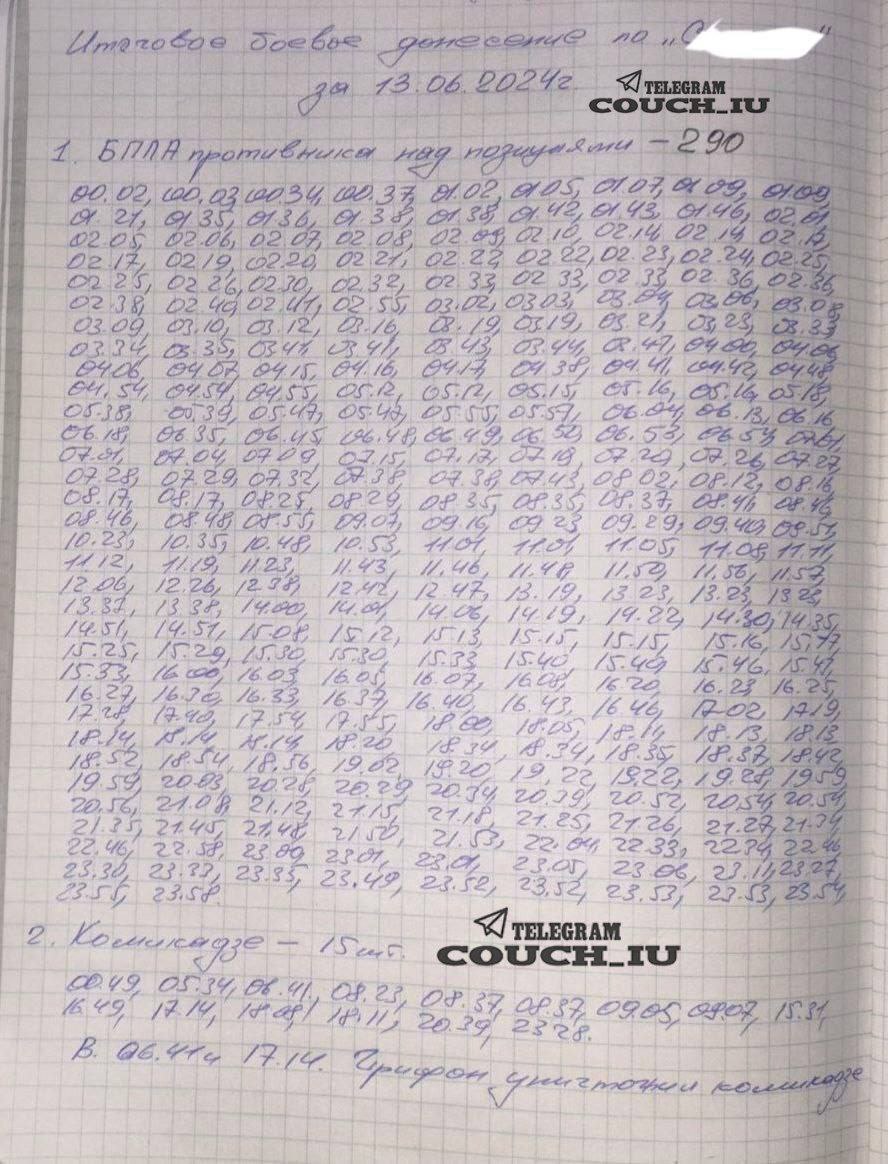 Итоговое боевое донесение по "С
за 13.06.2024г.
TELEGRAM
COUCH_IU
1. БПЛА противника над позициями - 290
00.02, 00.03, 00.34, 00.37, 01.02, 01.05, 01.07, 01.09, 01.09,
01.21, 01.35, 01.36, 01.38, 01.38, 01.42, 01.43, 01.46, 02.01
02.05, 02.06, 02.07, 02.08, 02.09, 02.10, 02.14, 02.14, 02.17,
02.17, 02.19, 02.20, 02.21, 02.22, 02.22, 02.23, 02.24, 02.25,
02.25, 02.26, 02.30, 02.32, 02.33, 02.33, 02.33, 02.36, 02.36,
02.38, 02.40, 02.41, 02.55, 03.02, 03.03, 03.04, 03.06, 03.08,
03.09, 03.10, 03.12, 03.16, 03.19, 03.19, 03.21, 03.23, 03.33
03.34, 03.35, 03.41, 03.41, 03.43, 03.44, 03.47, 04.00, 04.06
04.06, 04.07, 04.15, 04.16, 04.17, 04.38, 04.41, 04.42, 04.48
04.54, 04.54, 04.55, 05.12, 05.12, 05.15, 05.16, 05.16, 05.18,
05.38, 05.39, 05.47, 05.47, 05.55, 05.57, 06.04, 06.13, 06.16
06.18, 06.35, 06.45, 06.48, 06.49, 06.50, 06.53, 06.54, 07.01,
07.01, 07.04, 07.09, 07.15, 07.17, 07.19, 07.20, 07.26, 07.27,
07.28, 07.29, 07.32, 07.38, 07.38, 07.43, 08.02, 08.12, 08.16
08.17, 08.17, 08.25, 08.29, 08.35, 08.35, 08.37, 08.41, 08.46,
08.46, 08.48, 08.55, 09.07, 09.16, 09.23, 09.29, 09.40, 09.51,
10.23, 10.35, 10.48, 10.53, 11.01, 11.01, 11.05, 11.08, 11.11,
11.12, 11.19, 11.23, 11.43, 11.46, 11.48, 11.50, 11.56, 11.57,
12.06, 12.26, 12.38, 12.42, 12.47, 13.19, 13.23, 13.23, 13.23,
13.37, 13.38, 14.00, 14.01, 14.06, 14.19, 14.22, 14.30, 14.35,
14.51, 14.51, 15.08, 15.12, 15.13, 15.15, 15.15, 15.16, 15.17,
15.25, 15.29, 15.30, 15.30, 15.33, 15.40, 15.40, 15.46, 15.47,
15.33, 16.00, 16.03, 16.05, 16.07, 16.08, 16.20, 16.23, 16.25,
16.27, 16.30, 16.33, 16.37, 16.40, 16.43, 16.46, 17.02, 17.19,
17.28, 17.40, 17.54, 17.55, 18.00, 18.05, 18.11, 18.13, 18.13
18.14, 18.14, 18.14, 18.20, 18.34, 18.34, 18.35, 18.37, 18.42,
18.52, 18.54, 18.56, 19.02, 19.20, 19.22, 19.22, 19.28, 19.59,
19.59, 20.03, 20.28, 20.29, 20.34, 20.39, 20.52, 20.54, 20.54,
20.56, 21.08, 21.12, 21.15, 21.18, 21.25, 21.26, 21.27, 21.34,
21.35, 21.45, 21.48, 21.50, 21.53, 22.04, 22.33, 22.34, 22.46
22.46, 22.58, 23.00, 23.01, 23.01, 23.05, 23.06, 23.11, 23.27,
23.30, 23.33, 23.35, 23.49, 23.52, 23.52, 23.53, 23.53, 23.54,
23.55, 23.58.
2. Комикадзе - 15шт.
TELEGRAM
COUCH_IU
00.49, 05.34, 06.41, 08.23, 08.37, 08.37, 09.05, 09.07, 15.31,
16.49, 17.14, 18.08, 18.11, 20.39, 23.28.
В. 06.41 и 17.14. Грифон уничтожил комикадзе